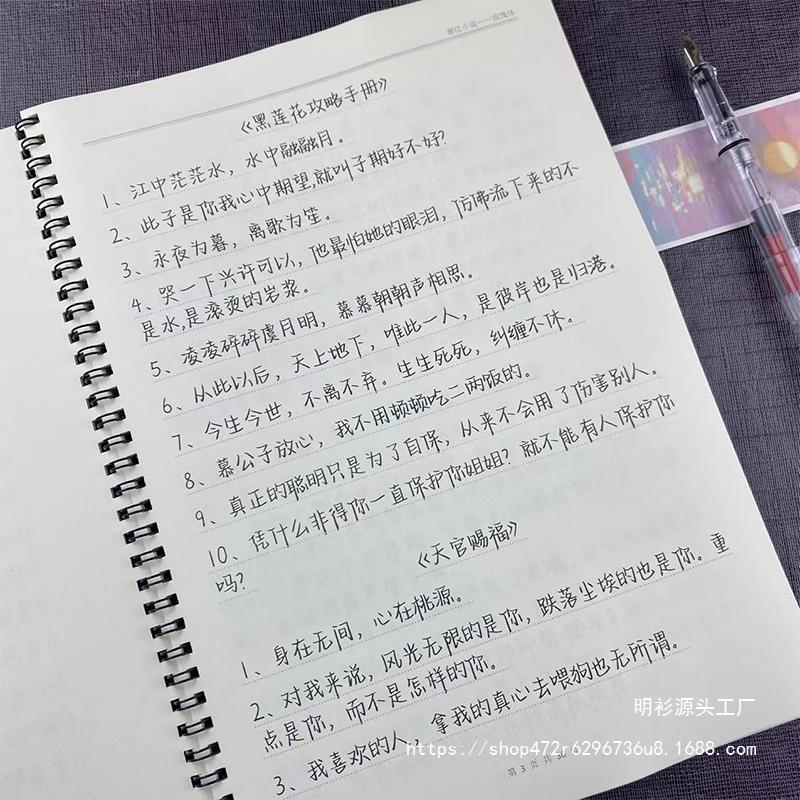 晋江小说——玫瑰体
《黑莲花攻略手册》
1、江中茫茫水，水中融融月。
2、此子是你我心中期望，就叫子期好不好？
3、永夜为暮，离歌为笙。
4、哭一下兴许可以，他最怕她的眼泪，仿佛流下来的不
是水，是滚烫的岩浆。
5、凌凌碎碎虞月明，慕慕朝朝声相思。
6、从此以后，天上地下，唯此一人，是彼岸也是归港。
7、今生今世，不离不弃。生生死死，纠缠不休。
8、慕公子放心，我不用顿顿吃二两饭的。
9、真正的聪明只是为了自保，从来不会用了伤害别人。
10、凭什么非得你一直保护你姐姐？就不能有人保护你
吗？
《天官赐福》
1、身在无间，心在桃源。
2、对我来说，风光无限的是你，跌落尘埃的也是你。重
点是你，而不是怎样的你。
3、我喜欢的人，拿我的真心去喂狗也无所谓。
明衫源头工厂
https://shop472r6296736u8.1688.com
第 3 页 共